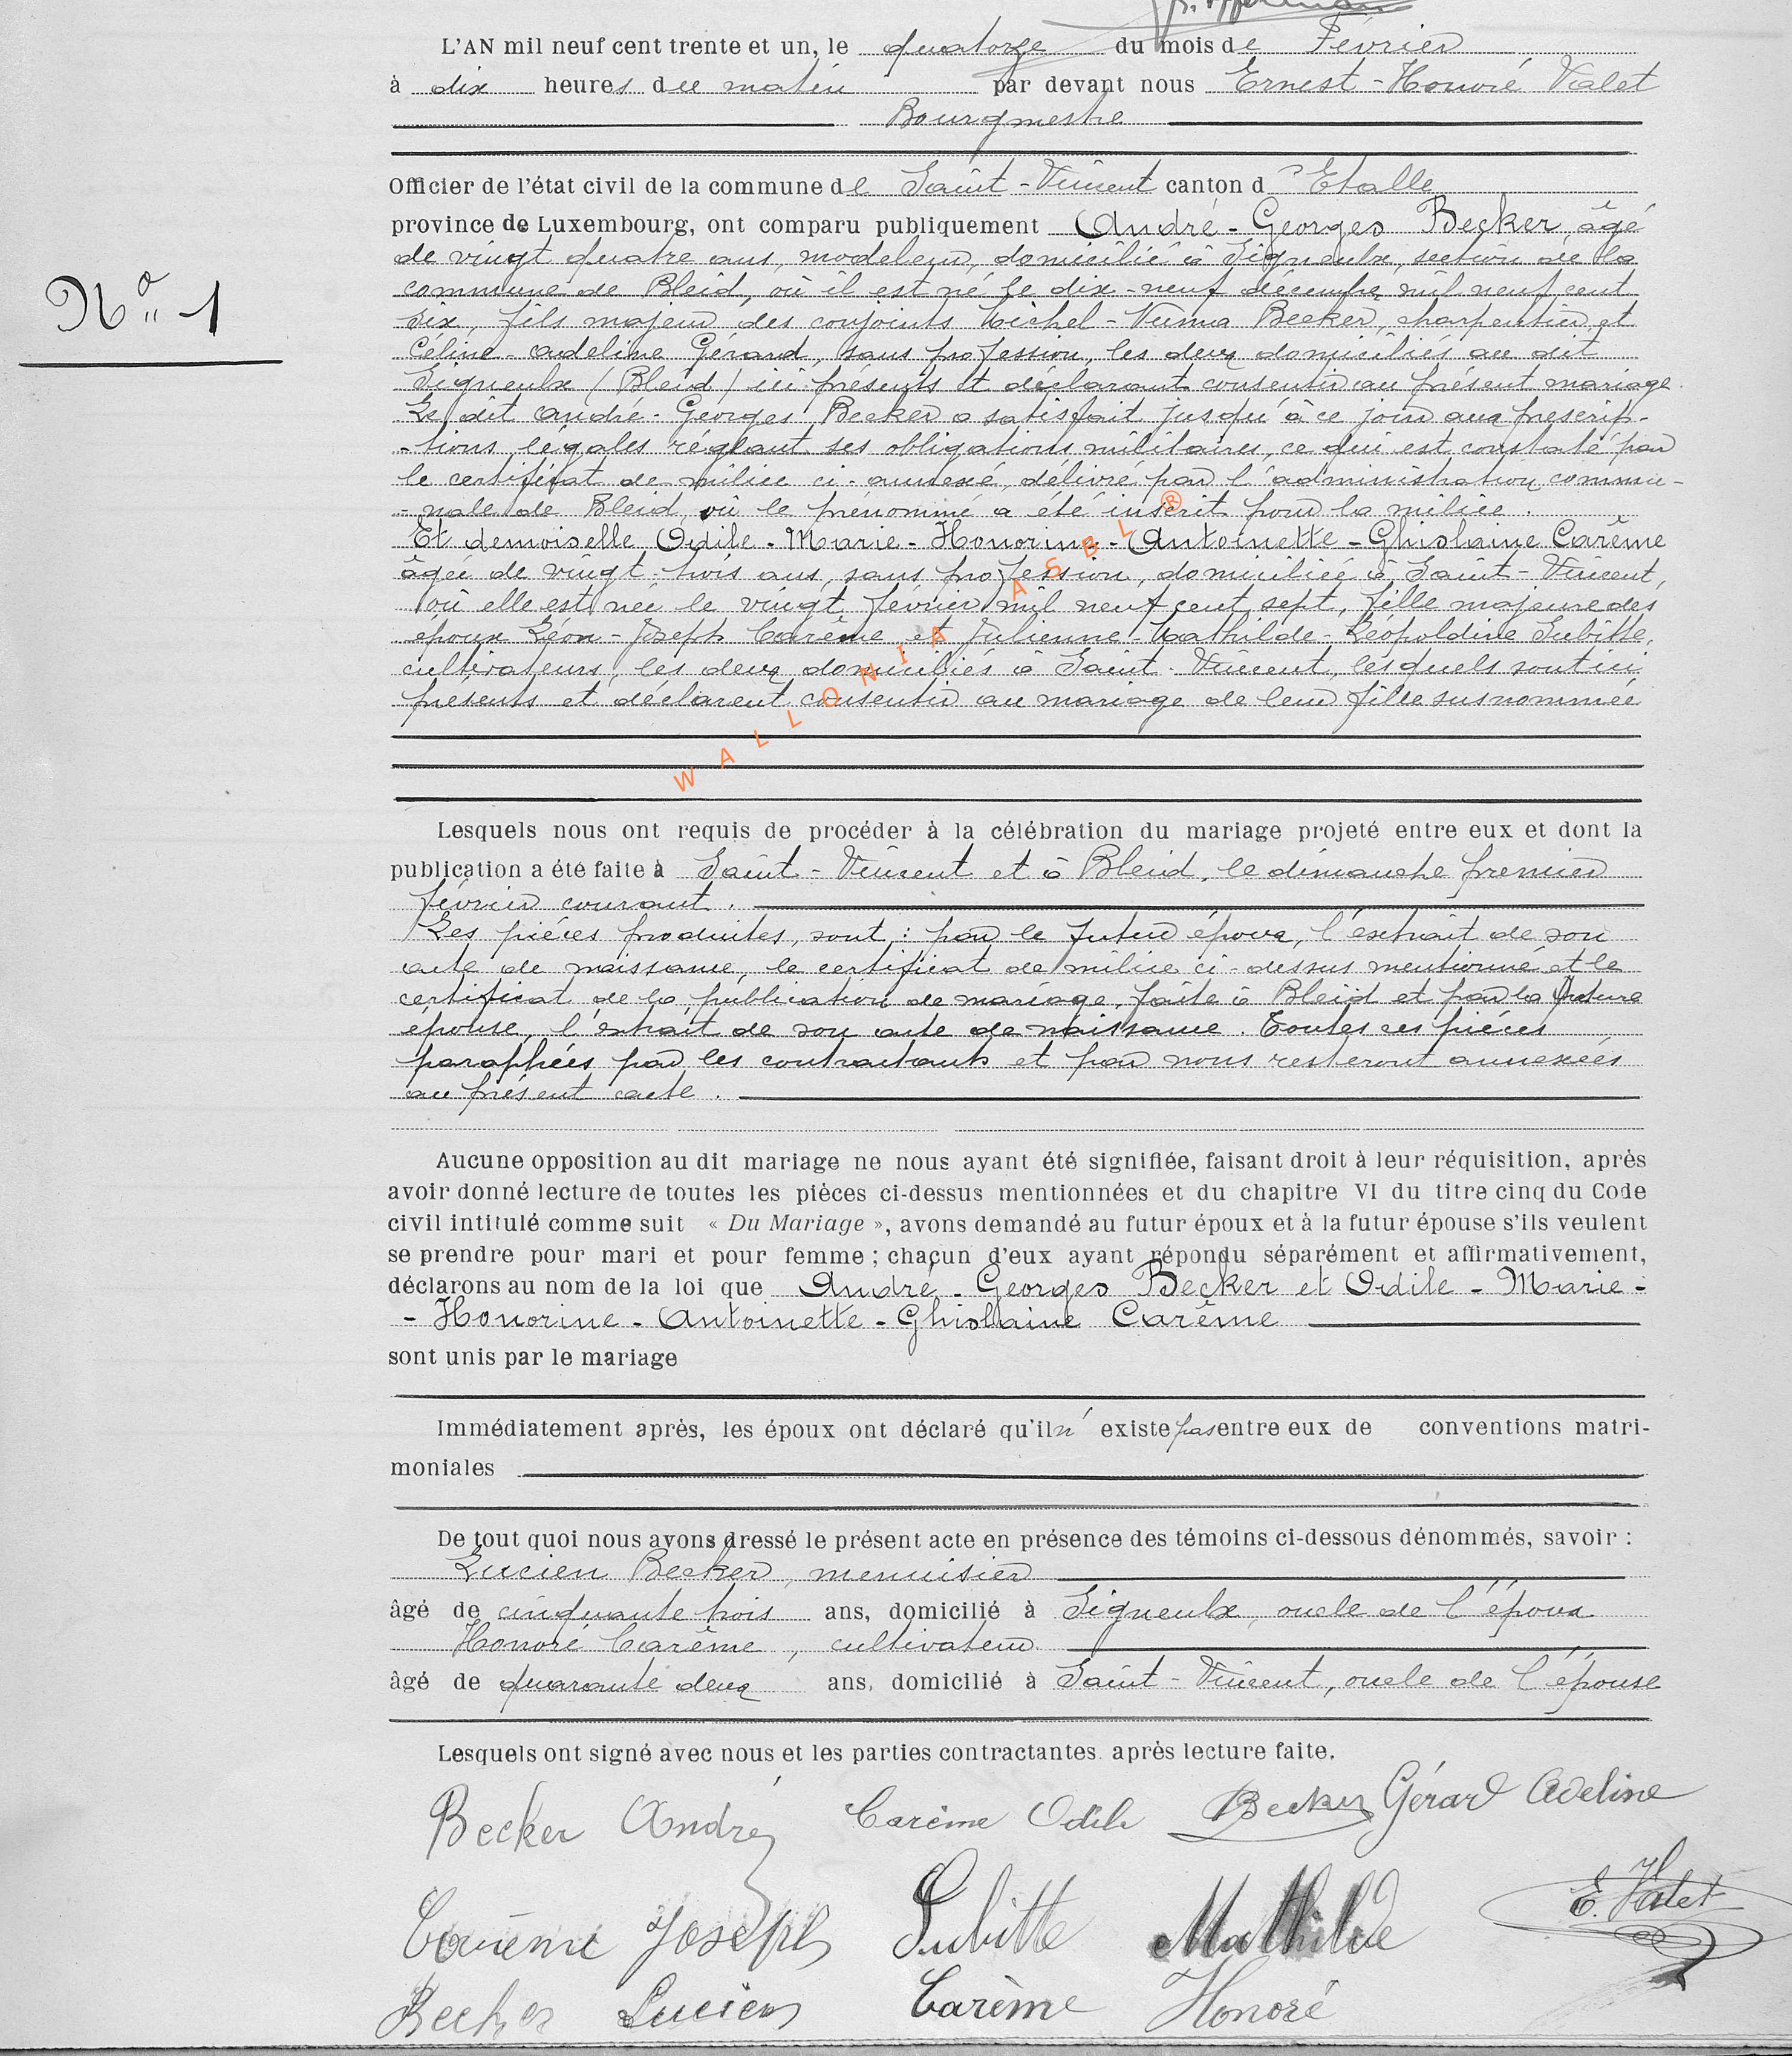 L'AN mil neuf cent trente et un, le quatorze du mois de Février
à dix heures du matin par devant nous Ernest-Honoré Valet
Bourgmestre
Officier de l'état civil de la commune de Saint-Vincent canton d'Etalle
province de Luxembourg, ont comparu publiquement André-Georges Becker, âgé
de vingt quatre ans, modeleur, domicilié à Signeulx, section de la
commune de Bleid, où il est né le dix-neuf décembre mil neuf cent
Nº 1
six, fils majeur des conjoints Michel-Numa Becker, charpentier et
Céline-Adeline Gérard, sans profession, les deux domiciliés au dit
Signeulx (Bleid) ici présents et déclarant consentir au présent mariage.
Le dit André-Georges Becker a satisfait jusqu'à ce jour aux prescrip-
-tions légales réglant ses obligations militaires, ce qui est constaté par
le certificat de milice ci-annexé, délivré par l'administration commu-
-nale de Bleid, où le prénommé a été inscrit pour la milice.
Et demoiselle Odile-Marie-Honorine-Antoinette-Ghislaine Carême
âgée de vingt-trois ans, sans profession, domiciliée à Saint-Vincent,
où elle est née le vingt février mil neuf cent sept, fille majeure des
époux Léon-Joseph Carême et Julienne-Mathilde-Léopoldine Subitte,
cultivateurs, les deux domiciliés à Saint-Vincent, lesquels sont ici
présents et déclarent consentir au mariage de leur fille susnommée
WALLONIA ASBL ®
Lesquels nous ont requis de procéder à la célébration du mariage projeté entre eux et dont la
publication a été faite à Saint-Vincent et à Bleid, le dimanche premier
février courant.
Les pièces produites, sont : par le futur époux, l'extrait de son
acte de naissance, le certificat de milice ci-dessus mentionné et le
certificat de la publication de mariage, faite à Bleid et par la future
épouse, l'extrait de son acte de naissance. Toutes ces pièces
paraphées par les contractants et par nous resteront annexées
au présent acte.
Aucune opposition au dit mariage ne nous ayant été signifiée, faisant droit à leur réquisition, après
avoir donné lecture de toutes les pièces ci-dessus mentionnées et du chapitre VI du titre cinq du Code
civil intitulé comme suit « Du Mariage », avons demandé au futur époux et à la futur épouse s'ils veulent
se prendre pour mari et pour femme ; chacun d'eux ayant répondu séparément et affirmativement,
déclarons au nom de la loi que André-Georges Becker et Odile-Marie-
-Honorine-Antoinette-Ghislaine Carême
sont unis par le mariage
Immédiatement après, les époux ont déclaré qu'il n'existe pas entre eux de conventions matri-
moniales
De tout quoi nous avons dressé le présent acte en présence des témoins ci-dessous dénommés, savoir :
Lucien Becker, menuisier
âgé de cinquante trois ans, domicilié à Signeulx, oncle de l'époux
Honoré Carême, cultivateur
âgé de quarante deux ans, domicilié à Saint-Vincent, oncle de l'épouse
Lesquels ont signé avec nous et les parties contractantes après lecture faite.
Becker André Carême Odile Becker Gérard Adeline
Carême Joseph Subitte Mathilde E. Valet
Becker Lucien Carème Honoré